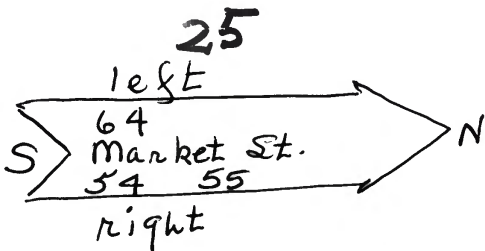 25
left
64
S Market St. N
54 55
right